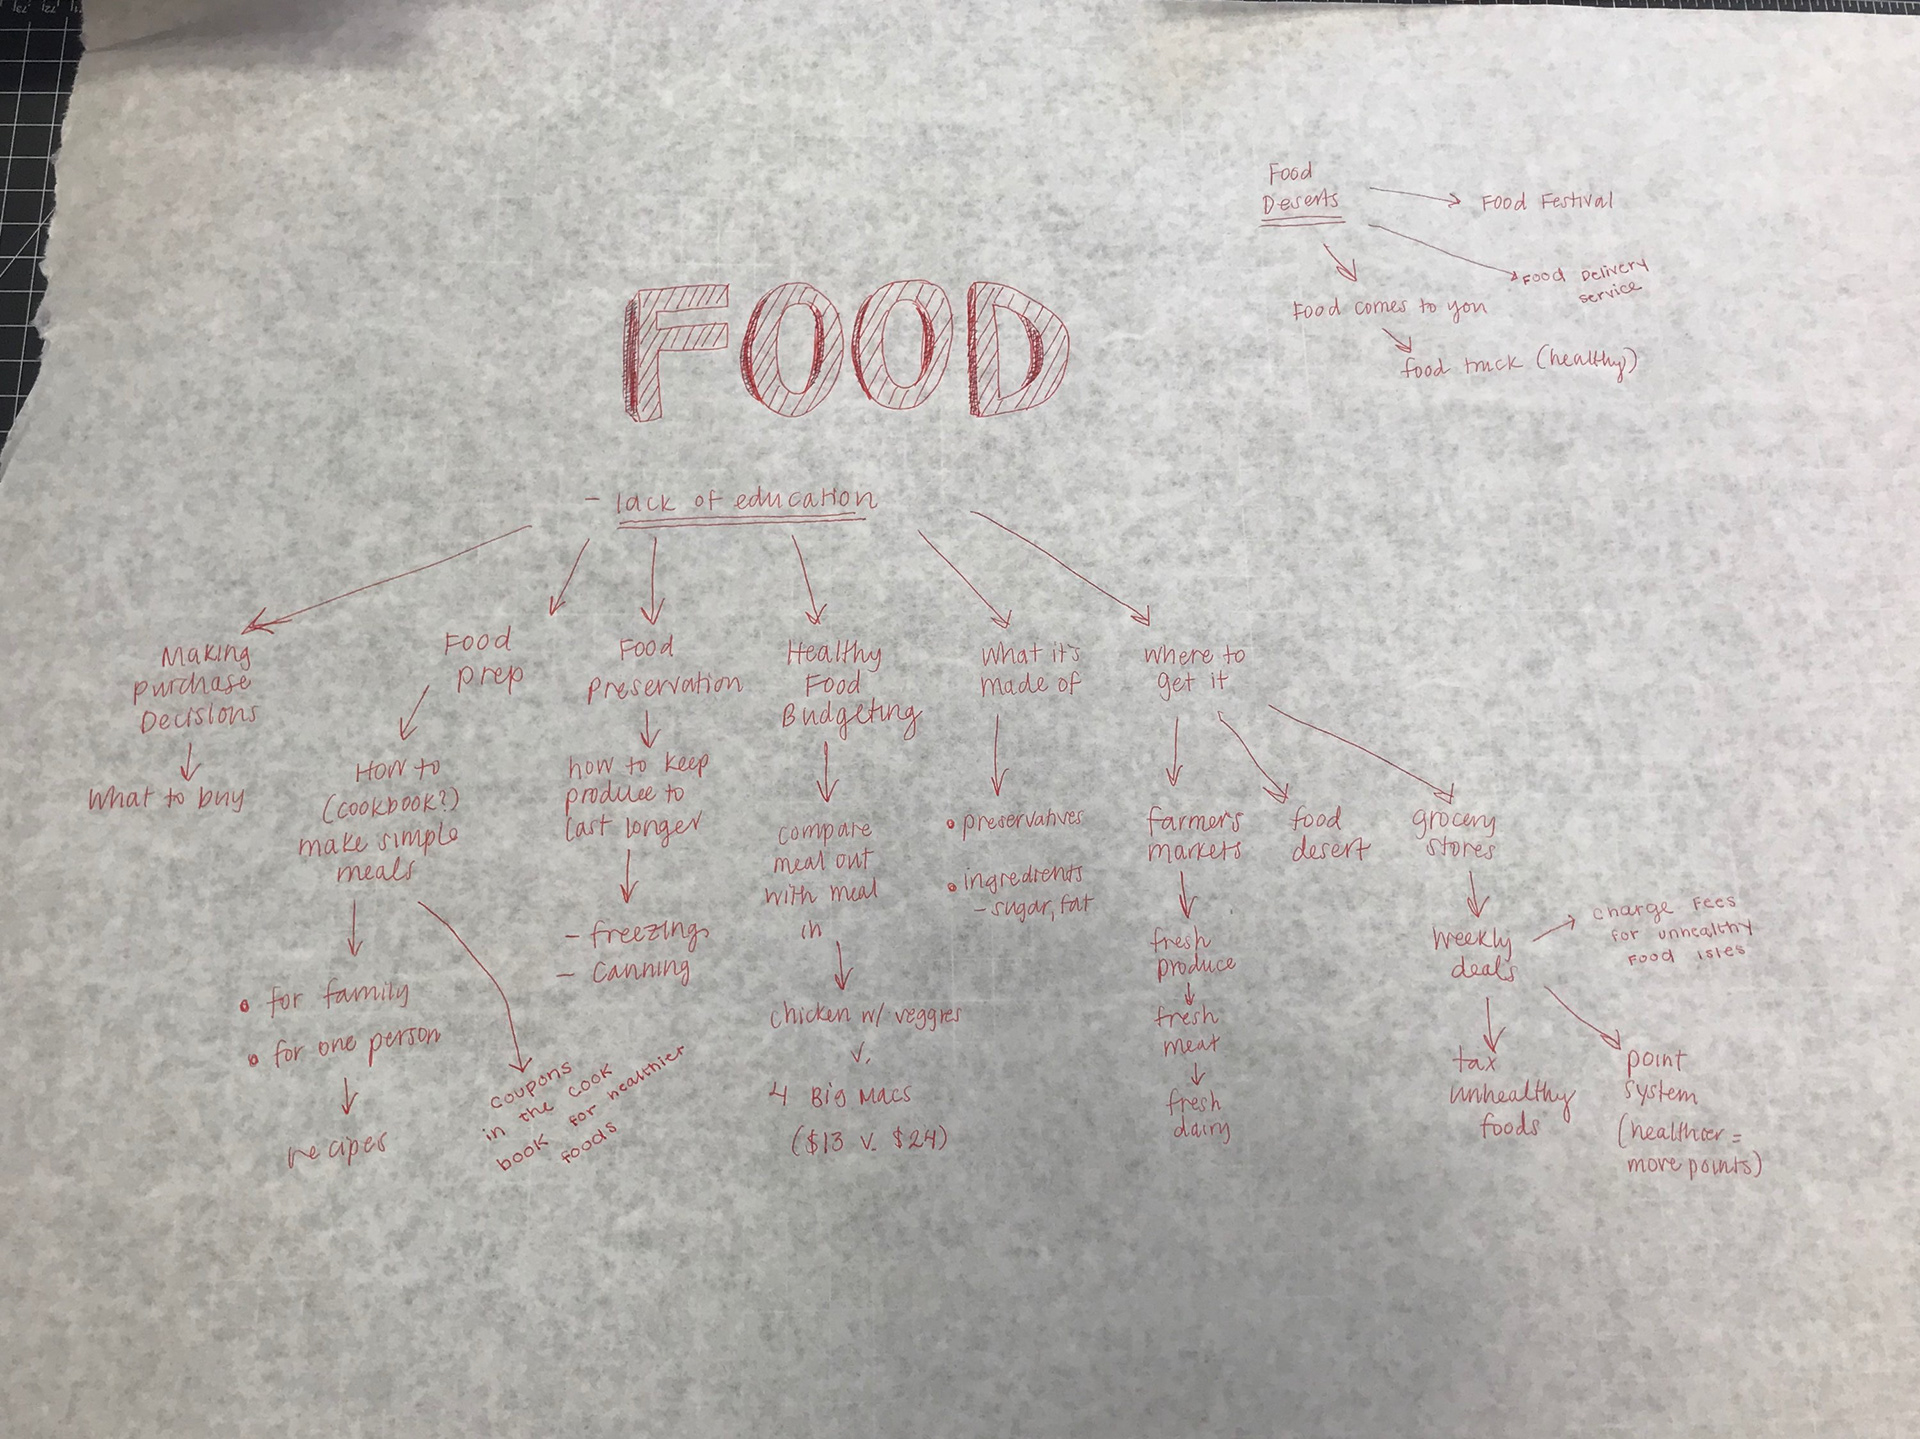 Food
Deserts
Food Festival
Food Delivery
service
Food comes to you
food truck (healthy)
FOOD
- lack of education
Making
purchase
Decisions
What to buy
Food
prep
How to
(cookbook?)
make simple
meals
• for family
• for one person
recipes
coupons
in the cook
book for healthier
foods
Food
preservation
how to keep
produce to
last longer
- freezing
- canning
Healthy
Food
Budgeting
compare
meal out
with meal
in
chicken w/ veggies
v.
4 Big Macs
($13 v. $24)
What it's
made of
• preservatives
• ingredients
- sugar, fat
where to
get it
farmer's
markets
fresh
produce
fresh
meat
fresh
dairy
food
desert
grocery
stores
weekly
deals
charge fees
for unhealthy
food isles
tax
unhealthy
foods
point
system
(healthier =
more points)